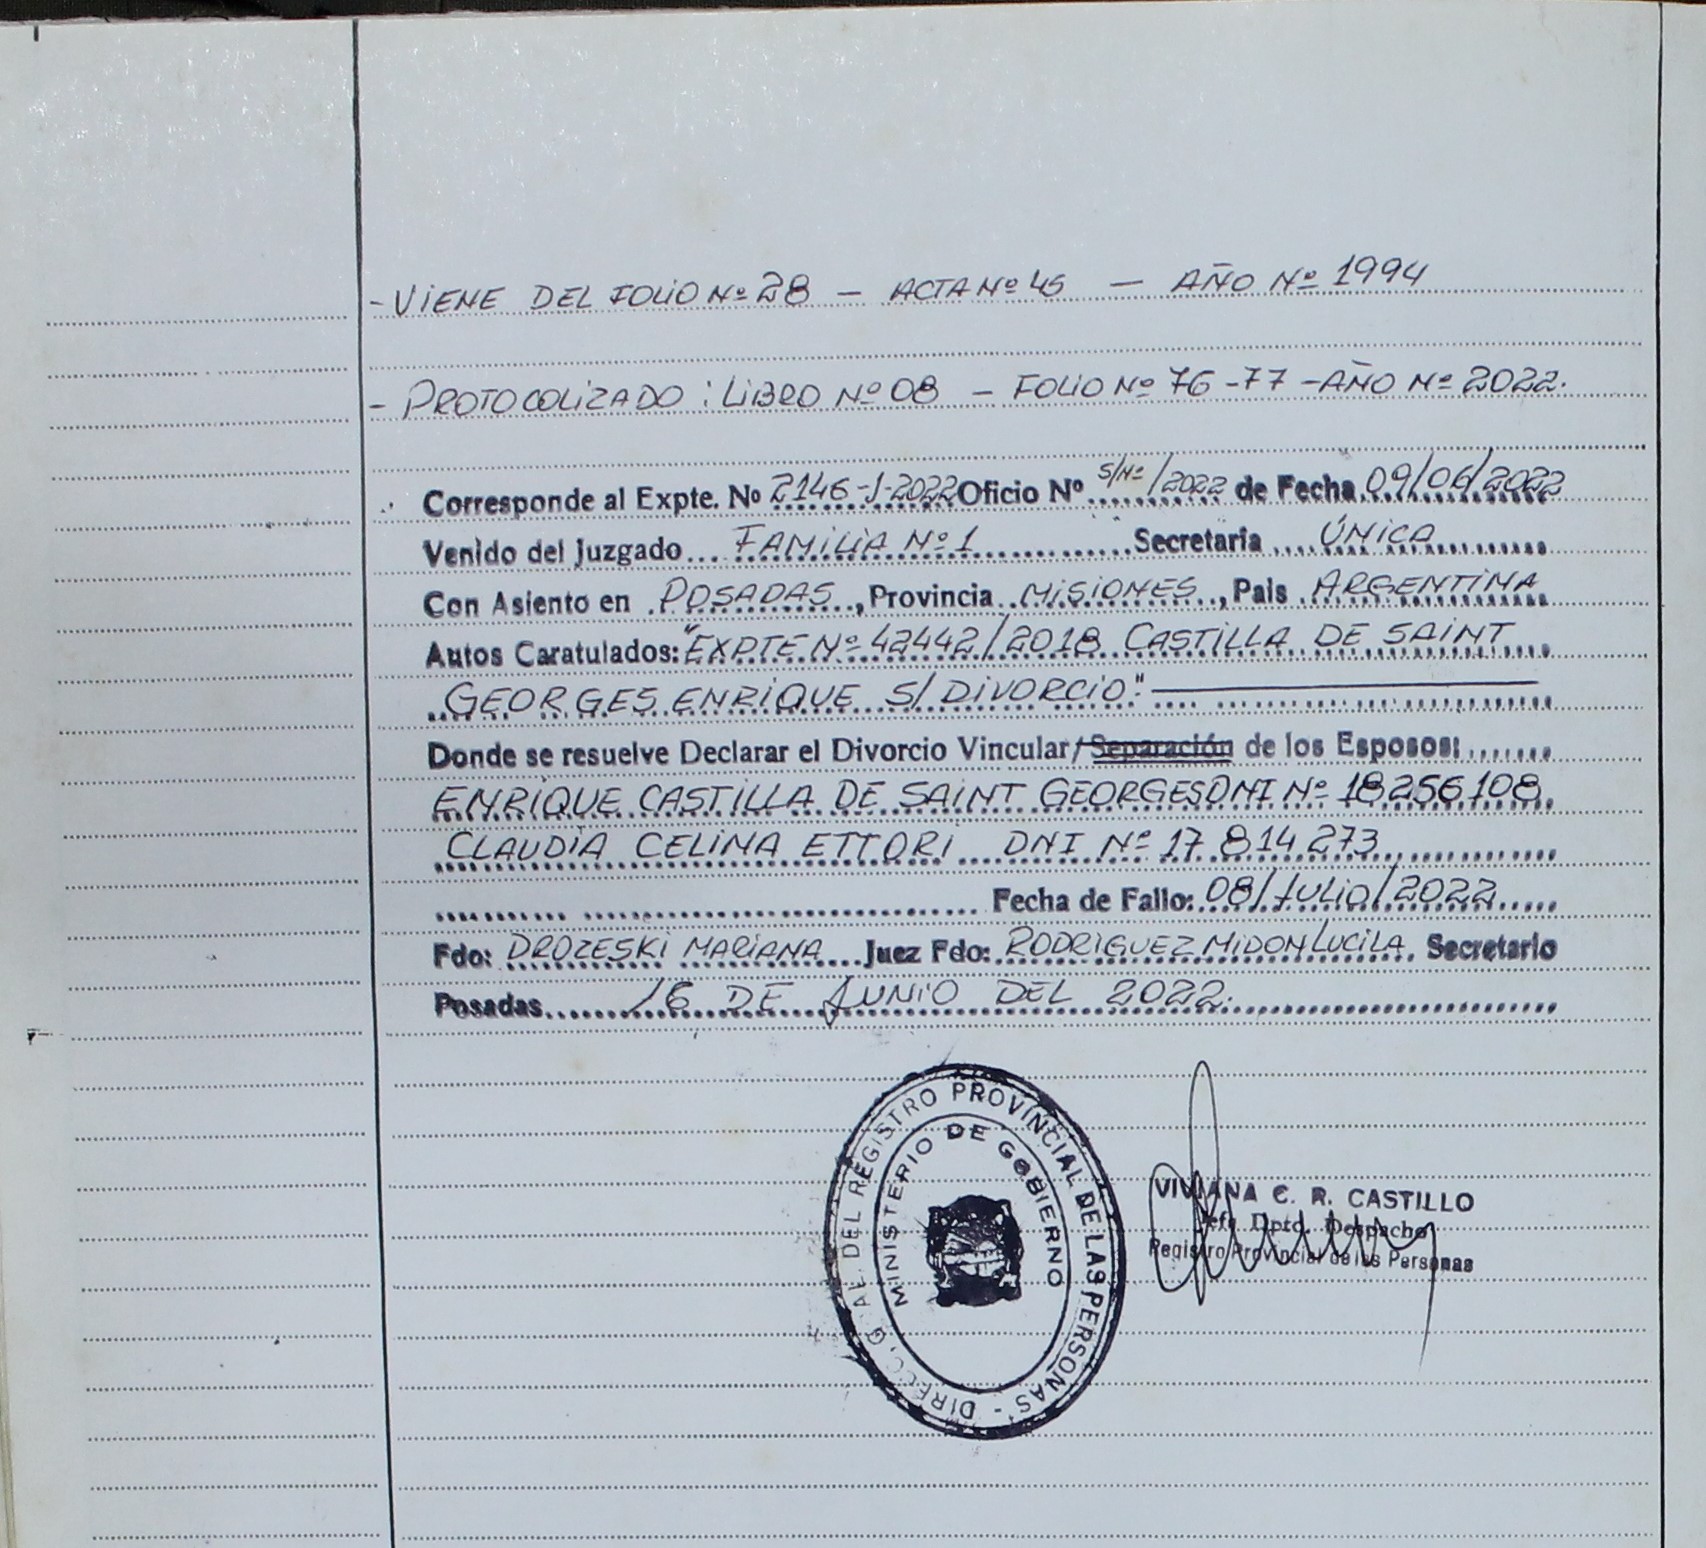 - VIENE DEL FOLIO Nº 28 - ACTA Nº 45 - AÑO Nº 1994
- PROTOCOLIZADO : LIBRO Nº 08 - FOLIO Nº 76-77 - AÑO Nº 2022.
Corresponde al Expte. Nº 2146-J-2022 Oficio Nº S/Nº/2022 de Fecha 09/06/2022
Venido del Juzgado... FAMILIA Nº 1 ...Secretaria ... ÚNICA
Con Asiento en POSADAS, Provincia MISIONES, Pais ARGENTINA
Autos Caratulados: "EXPTE Nº 42442/2018 CASTILLA DE SAINT
GEORGES ENRIQUE S/ DIVORCIO."
Donde se resuelve Declarar el Divorcio Vincular/Separación de los Esposos:
ENRIQUE CASTILLA DE SAINT GEORGES DNI Nº 18256108
CLAUDIA CELINA ETTORI DNI Nº 17 814 273
Fecha de Fallo: 08/JULIO/2022
Fdo: DROZESKI MARIANA Juez Fdo: RODRIGUEZ MIDON LUCILA. Secretario
Posadas 16 DE JUNIO DEL 2022.
DIRECC. GRAL. DEL REGISTRO PROVINCIAL DE LAS PERSONAS -
MINISTERIO DE GOBIERNO
VIVIANA C. R. CASTILLO
Jefe Dpto. Despacho
Registro Provincial de las Personas